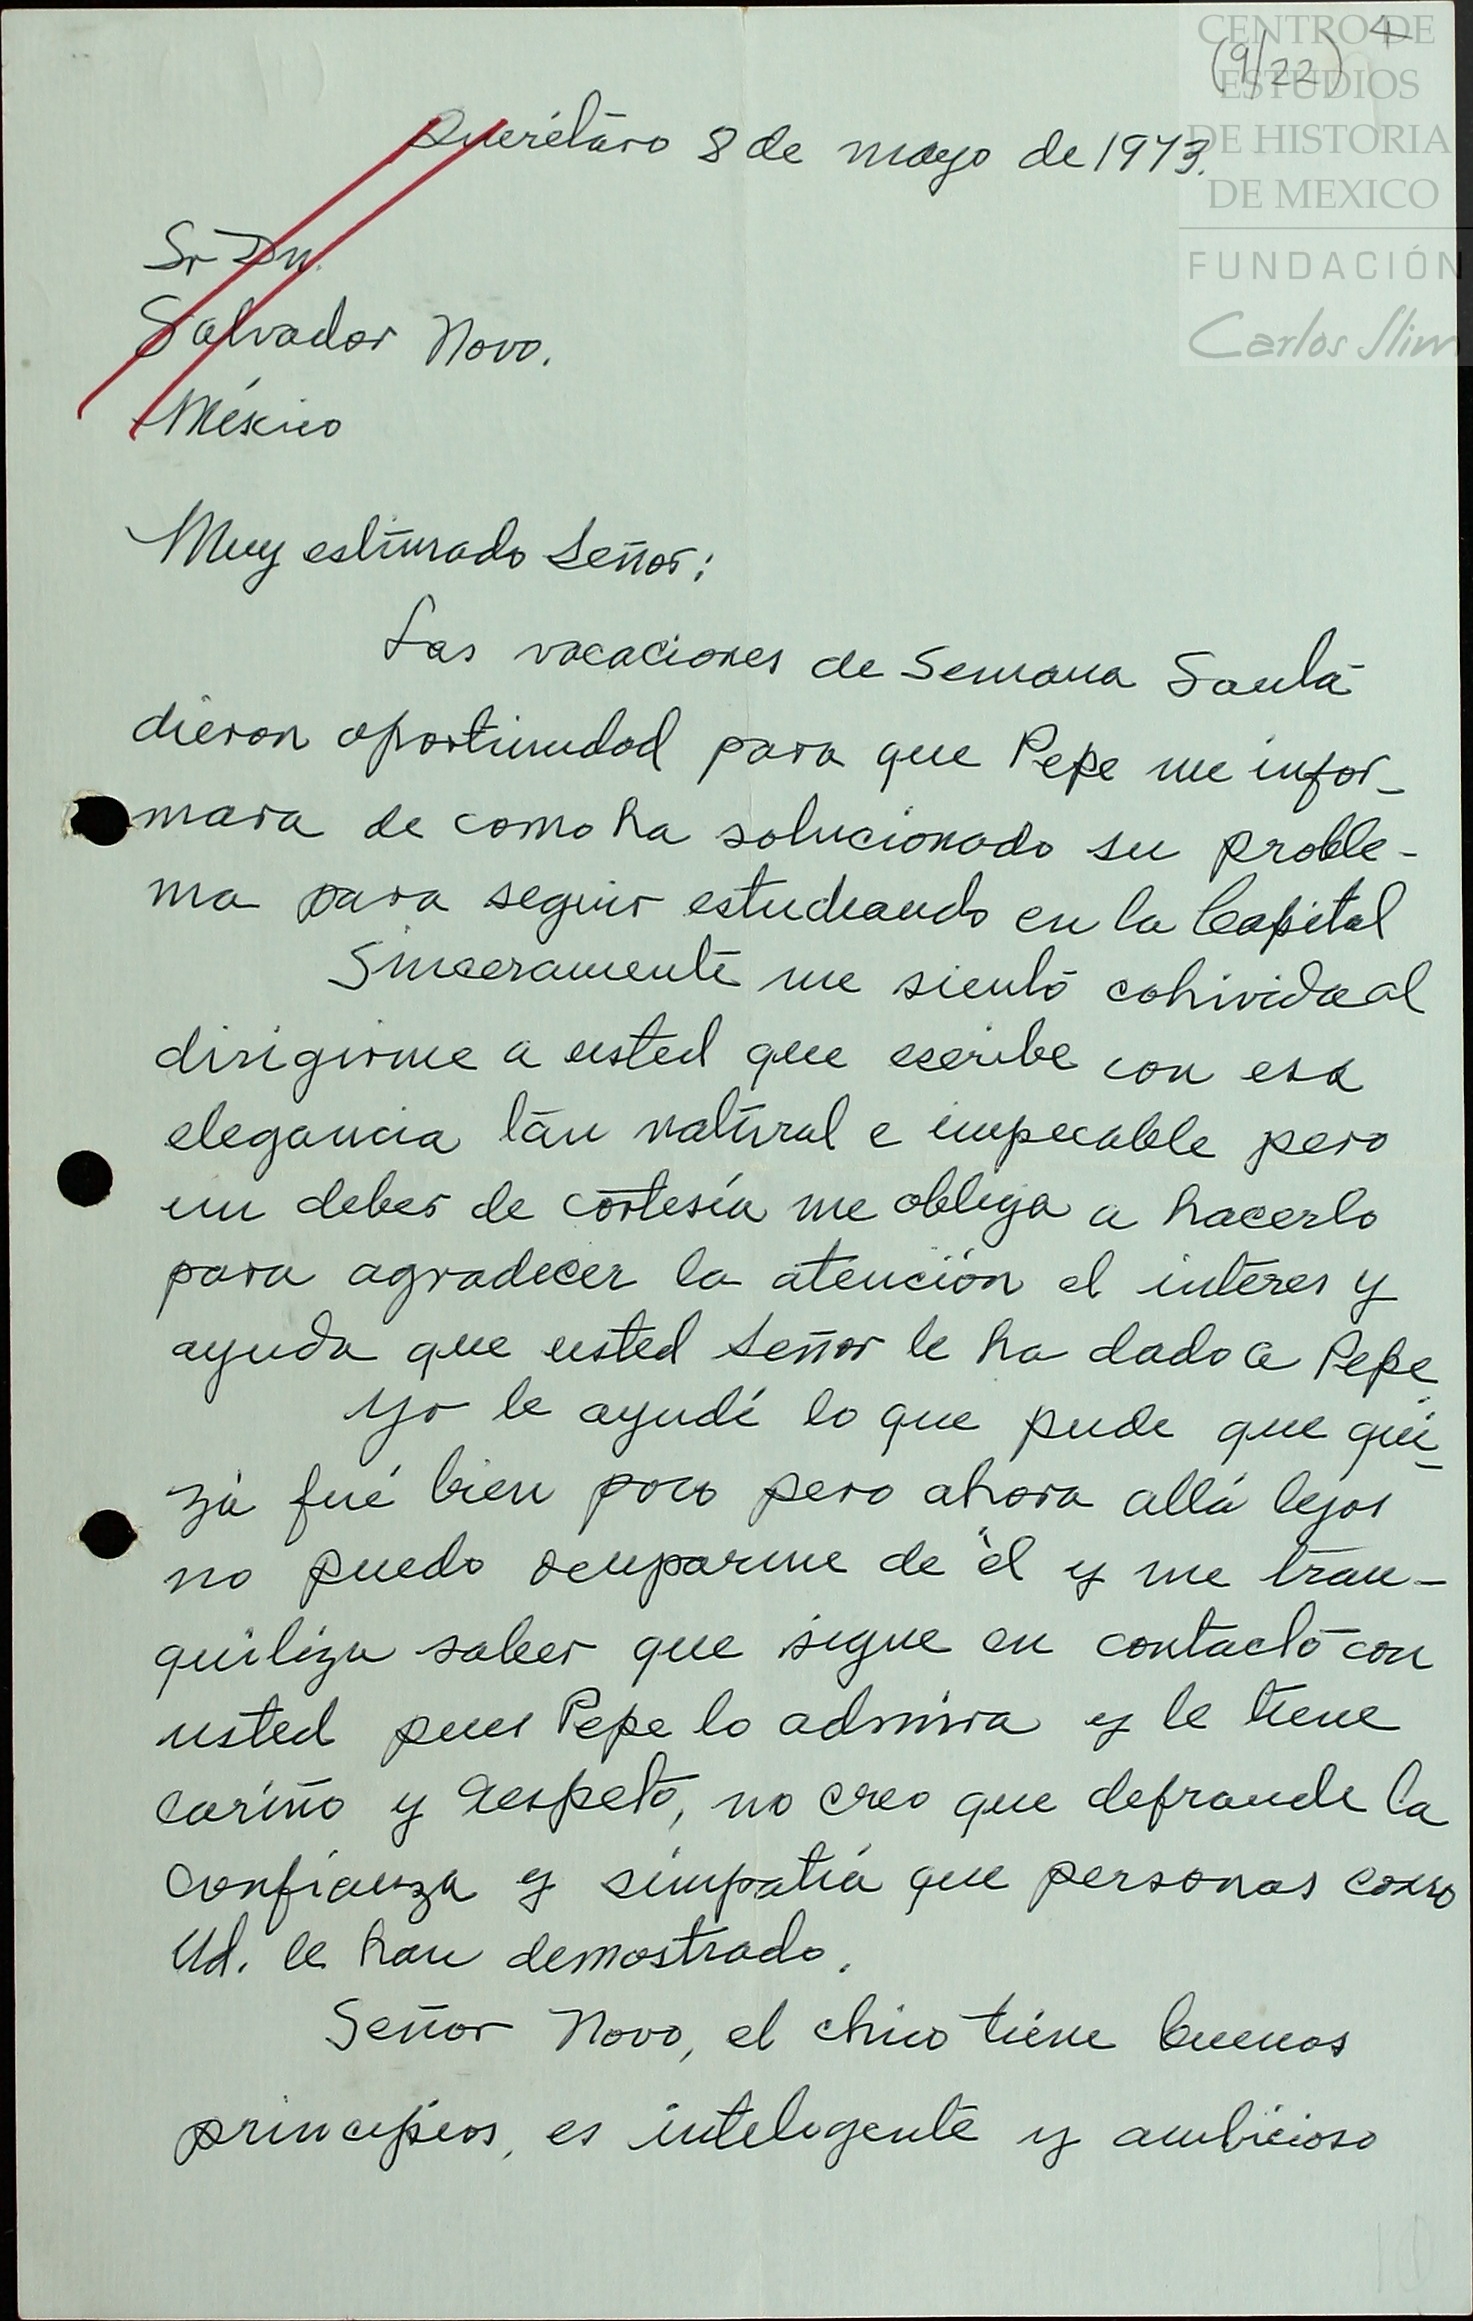 CENTRO DE
ESTUDIOS
DE HISTORIA
DE MEXICO
FUNDACIÓN
Carlos Slim
(9/22) 4
Querétaro 8 de mayo de 1973.
Sr Dn.
Salvador Novo.
México
Muy estimado Señor:
Las vacaciones de Semana Santa
dieron oportunidad para que Pepe me infor-
mara de como ha solucionado su proble-
ma para seguir estudiando en la Capital
Sinceramente me siento cohivida al
dirigirme a usted que escribe con esa
elegancia tan natural e impecable pero
un deber de cortesía me obliga a hacerlo
para agradecer la atención el interes y
ayuda que usted Señor le ha dado a Pepe
Yo le ayudé lo que pude que qui-
zá fué bien poco pero ahora allá lejos
no puedo ocuparme de él y me tran-
quiliza saber que sigue en contacto con
usted pues Pepe lo admira y le tiene
cariño y respeto, no creo que defraude la
confianza y simpatía que personas como
Ud. le han demostrado.
Señor Novo, el chico tiene buenos
principios, es inteligente y ambicioso